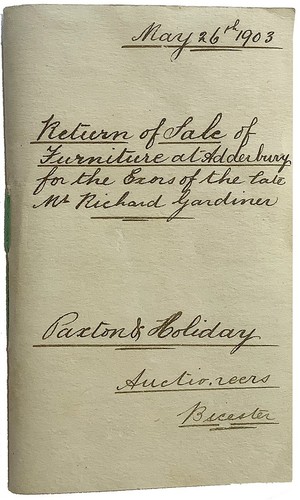 May 26th 1903
Return of Sale of
Furniture at Adderbury
for the Exors of the late
Mr Richard Gardiner
Paxton & Holiday
Auctioneers
Bicester